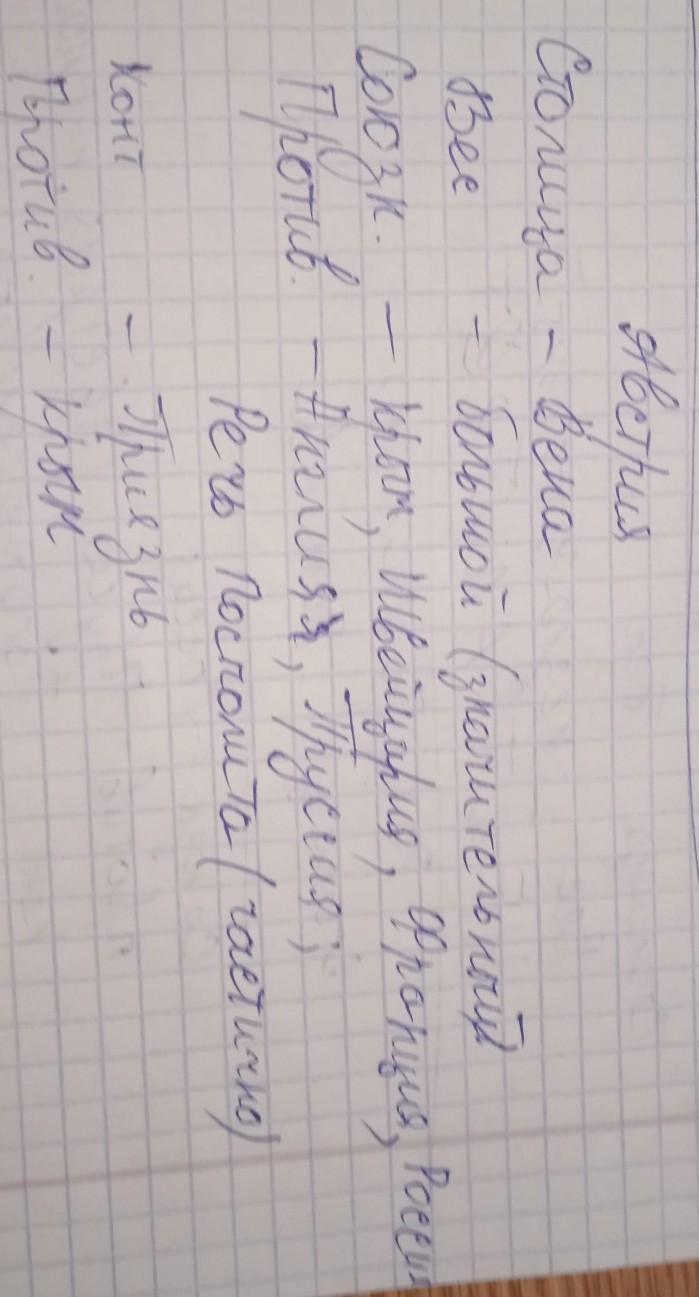 Австрия
Столица - Вена
Вес - большой (значительный)
Союзн. - Крым, Швейцария, Франция, Россия
Против. - Англия, Пруссия,
Речь Посполита (частично)
Конт - Приязнь
Против. - Крым